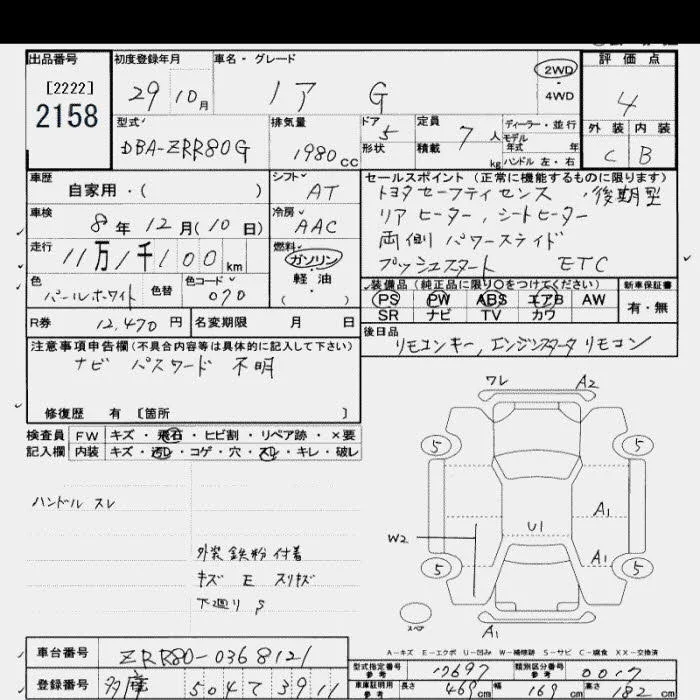 出品番号 初度登録年月 車名・グレード 評価点
[2222]
2158
29 10月 ノア G 2WD ・ 4WD 4
型式 排気量 ドア 定員 ディーラー・並行 外装 内装
DBA-ZRR80G 1980cc 5 7人 モデル年式 年
形状 積載 kg ハンドル 左・右 C B
車歴 シフト セールスポイント(正常に機能するものに限ります)
自家用・( ) AT トヨタセーフティセンス ,後期型
車検 冷房 リアヒーター,シートヒーター
8年12月(10日) AAC 両側パワースライド
走行 燃料 プッシュスタート ETC
11万1千100km ガソリン
軽・油
( )
色 色替 色コード 装備品(純正品に限り○をつけてください) 新車保証書
パールホワイト 070 PS PW ABS エアB AW 有・無
SR ナビ TV カワ
R券 12,470円 名変期限 月 日 後日品
リモコンキー,エンジンスターターリモコン
注意事項申告欄(不具合内容等は具体的に記入して下さい)
ナビ パスワード 不明
修復歴 有 [箇所 ]
検査員 FW キズ・飛石・ヒビ割・リペア跡・×要
記入欄 内装 キズ・汚れ・コゲ・穴・スレ・キレ・破レ
ハンドル スレ
外装 鉄粉 付着
キズ E スリキズ
下廻り S
ワレ A2
5 5
A1
W2 U1
A1
5 5
スペア
A1
A-キズ E-エクボ U-凹み W-補修跡 S-サビ C-腐食 XX-交換済
車台番号 ZRR80-0368121
登録番号 多摩 504 そ 3911
型式指定番号 参考 17697 類別区分番号 参考 0017
車庫証明用 参考 長さ 469cm 幅 169cm 高さ 182cm